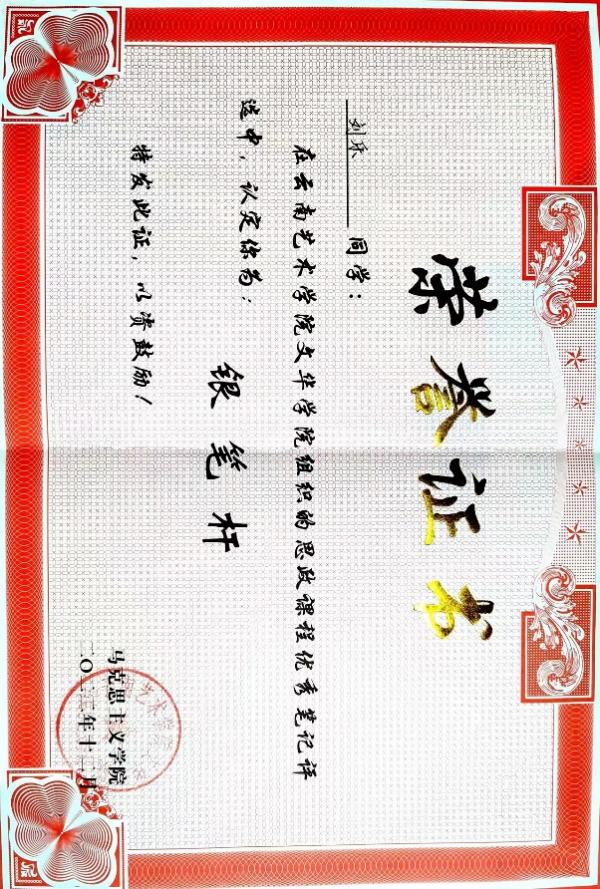 荣誉证书
刘乐 同学：
在云南艺术学院文华学院组织的思政课程优秀笔记评
选中，认定你为：
银笔杆
特发此证，以资鼓励！
马克思主义学院
二〇二三年十二月